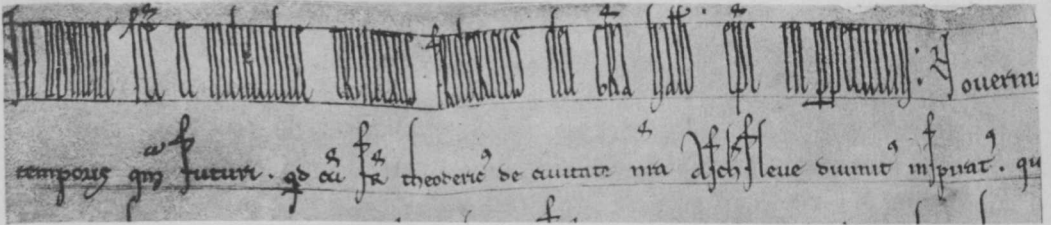 In nomine sce et individue trinitatis fridericus dei gra halb. epc in ppetuum. Noverint
temporis qm futuri. qd cu fr theoderic de civitate nra Aschsleve divinit inspirat. qu